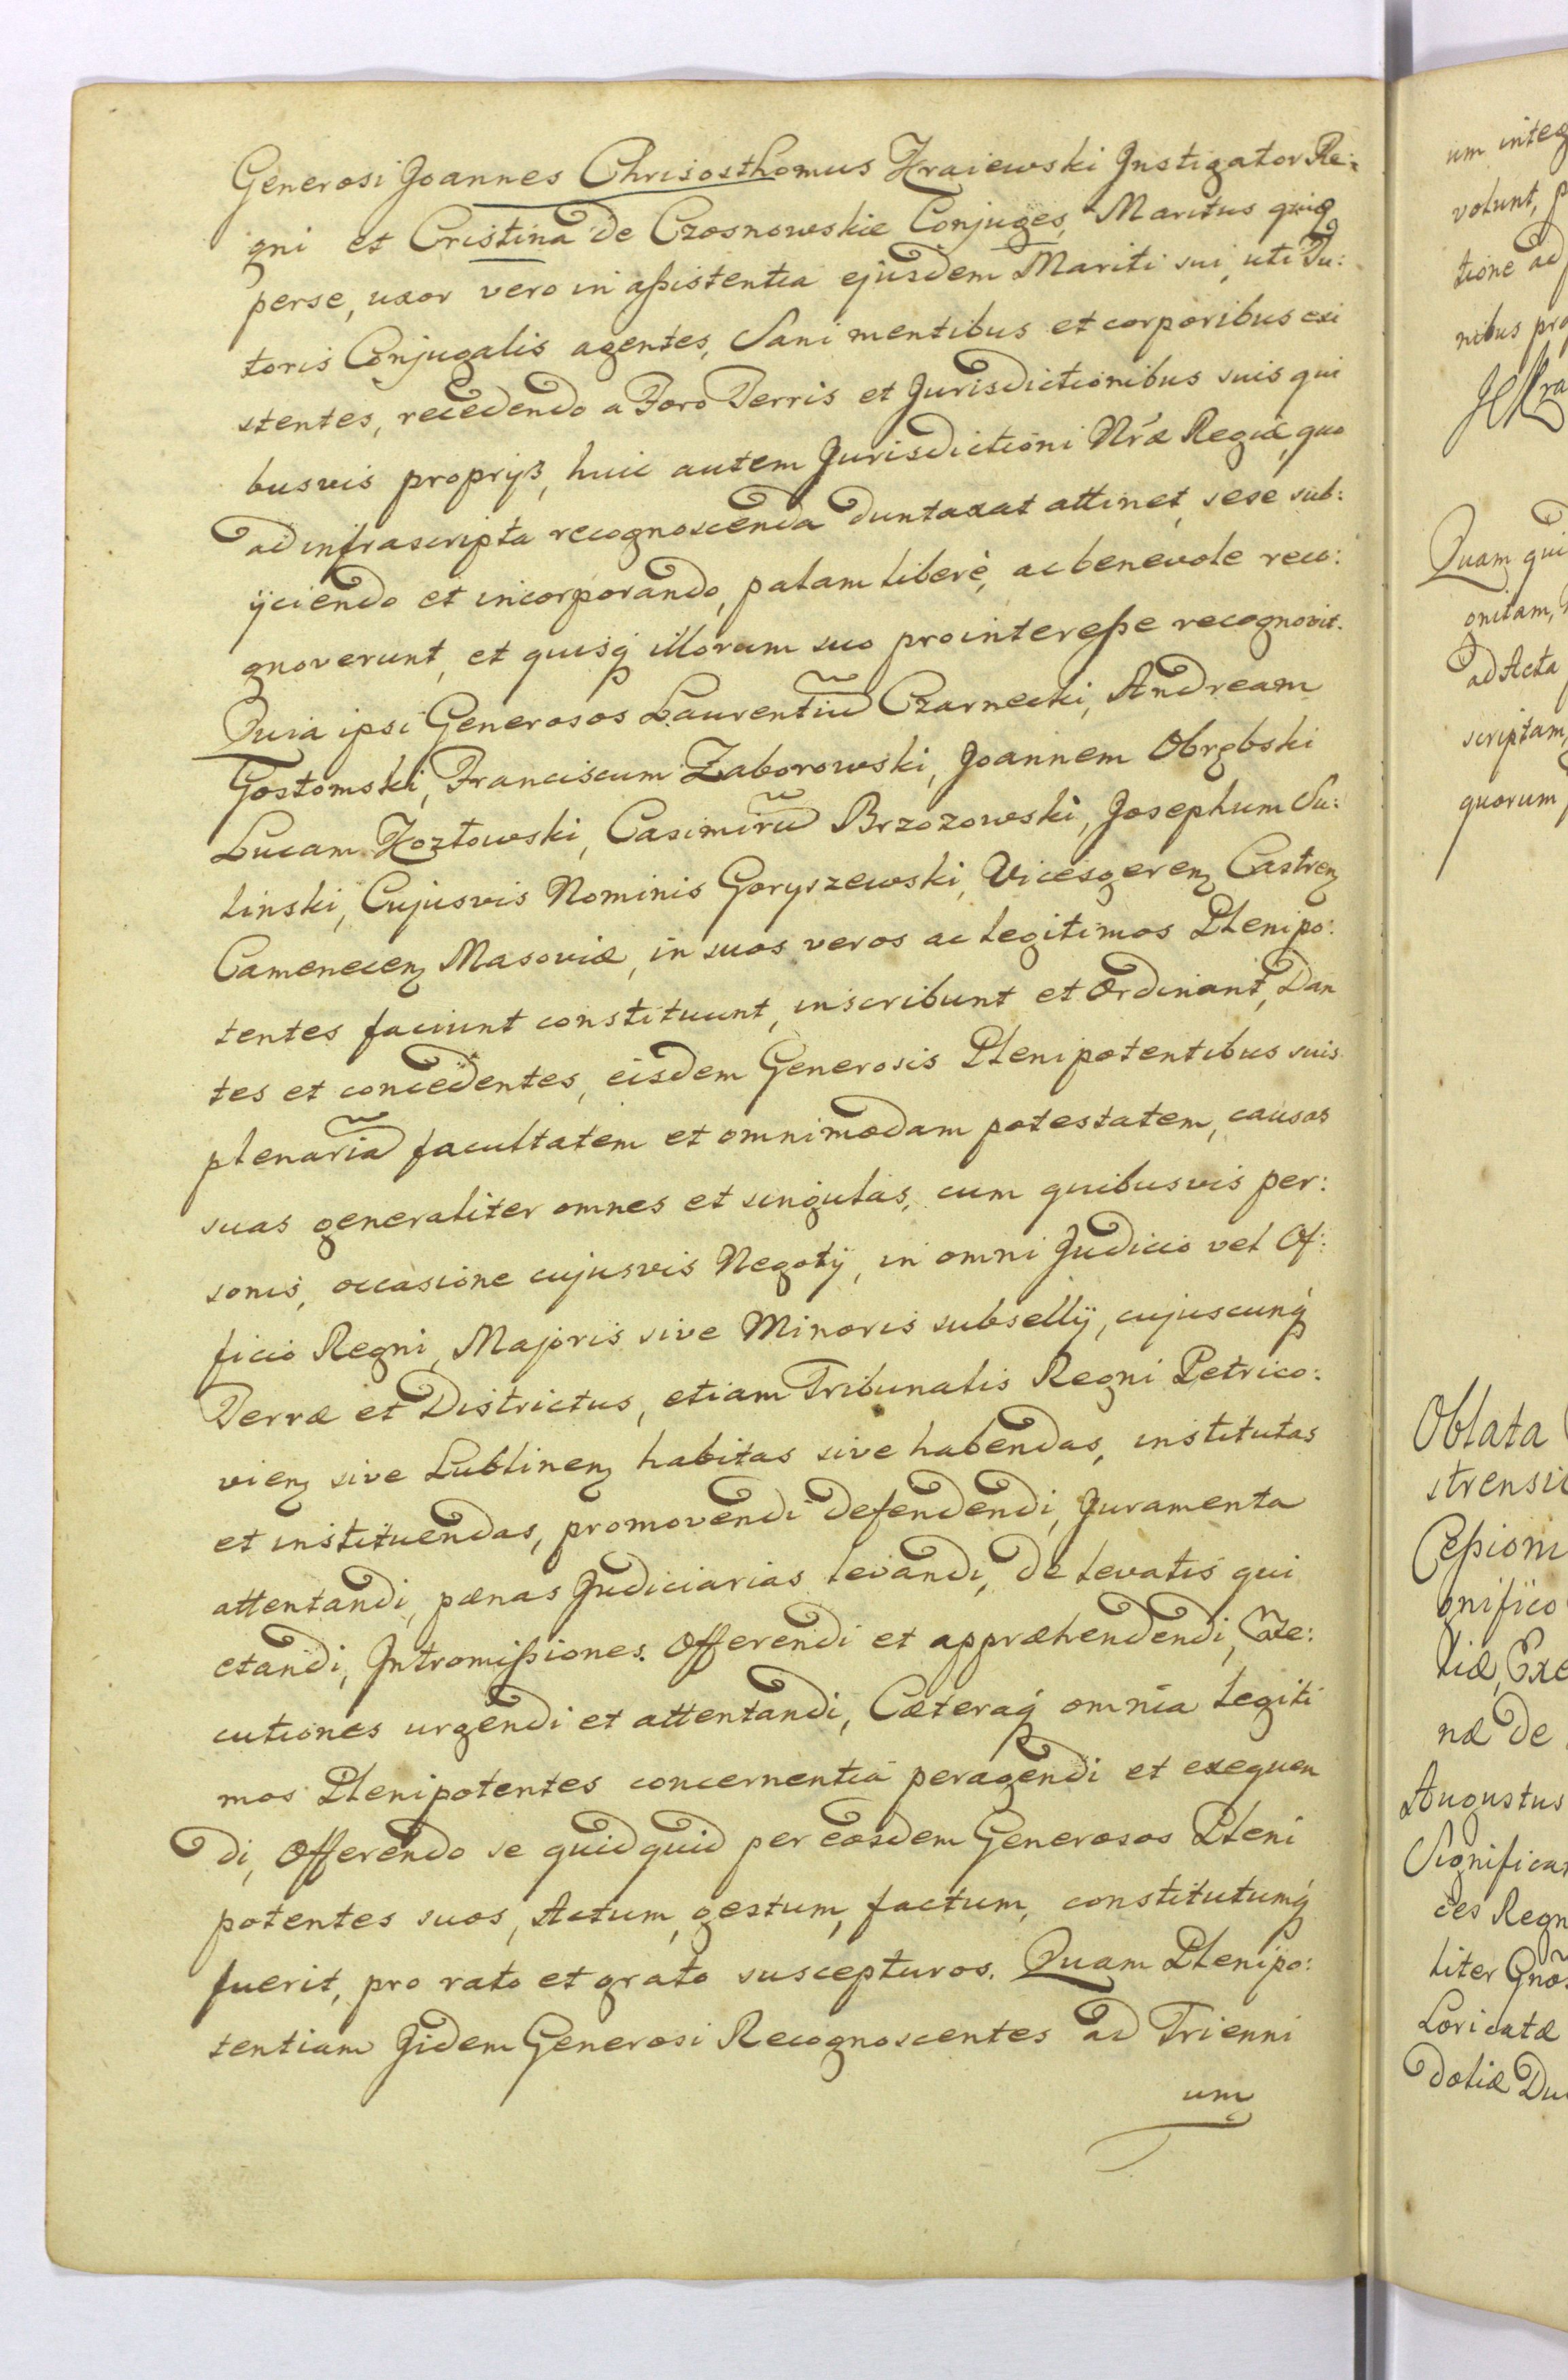 Generosi Joannes Chrisosthomus Kraiewski Instigator Re:
gni et Cristina de Czosnowskie Conjuges, Maritus quidē
perse, uxor vero in aßistentia ejusdem Mariti sui, uti Tu:
toris Conjugalis agentes, Sani mentibus et corporibus exi
stentes, recedendo a Foro Terris et Jurisdictionibus suis qui
busvis proprijs, huic autem Jurisdictioni Nr̃æ Regiæ, quo
ad infrascripta recognoscenda duntaxat attinet, sese sub:
ijciendo et incorporando, palam liberè, ac benevole reco:
gnoverunt, et quisq́ illorum suo prointereße recognovit.
Quia ipsi Generosos Laurentiũ Czarnecki, Andream
Gostomski, Franciscum Zaborowski, Joannem Obrębski
Lucam Kozłowski, Casimirũ Brzozowski, Josephum Su:
linski, Cujusvis Nominis Goryszewski, Vicesgerenʒ Castrenʒ
Camenecenʒ Masoviæ, in suos veros ac legitimos Plenipo:
tentes faciunt constituunt, inscribunt et ordinant, Dan
tes et concedentes, eisdem Generosis Plenipotentibus suis
plenariã facultatem et omnimodam potestatem, causas
suas generaliter omnes et singulas, cum quibusvis per:
sonis, occasione cujusvis Negotij, in omni Judicio vel Of:
ficio Regni, Majoris sive Minoris subsellij, cujuscunq́
Terræ et Districtus, etiam Tribunalis Regni Petrico:
vienʒ sive Lublinenʒ habitas sive habendas, institutas
et instituendas, promovendi defendendi, Juramenta
attentandi, pænas Judiciarias levandi, de levatis qui
etandi, Intromißiones. Offerendi et appræhendendi, Exe:
cutiones urgendi et attentandi, Cæteraq́ omnia legiti
mos Plenipotentes concernentia peragendi et exequen
di, Offerendo se quidquid per eosdem Generosos Pleni
potentes suos, Actum, gestum, factum, constitutumq́
fuerit, pro rato et grato suscepturos. Quam Plenipo:
tentiam Jidem Generosi Recognoscentes ad Trienni
um
um integ
volunt, p
tione ad
nibus pro
Quam qui
gnitam,
ad Acta
scriptam,
quorum
Oblata
strensi
Ceßioni
gnifico
liæ, Exe
næ de
Augustus
Significa
ces Regn
liter Gnõs
Loricatæ
doliæ Du